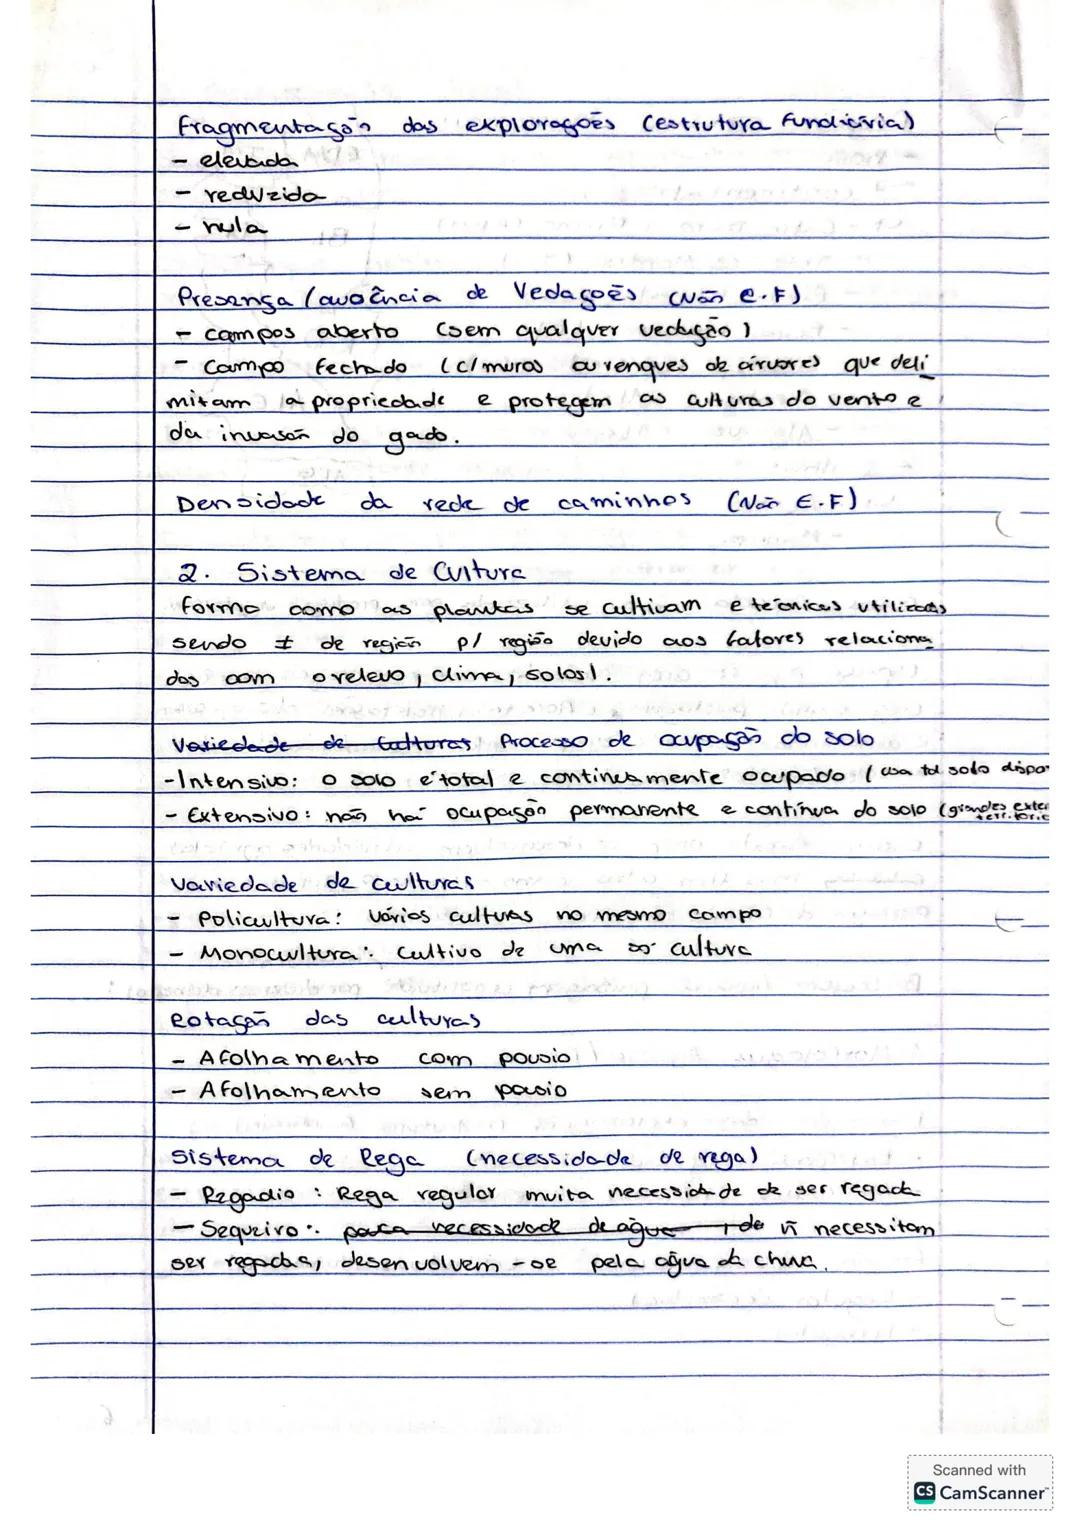 Fragmentação das explorações (estrutura Fundiária)
- elevada
- reduzida
- nula
Presença/ausência de Vedações (Não E.F)
- Campos aberto (sem qualquer vedação)
- Campo fechado (c/ muros ou renques de árvores que deli
mitam a propriedade e protegem as culturas do vento e
da invasão do gado.
Densidade da rede de caminhos (Não E.F)
2. Sistema de Cultura
forma como as plantas se cultivam e técnicas utilizadas
sendo ≠ de região p/ região devido aos fatores relaciona
dos com o relevo, clima, solos).
Variedade de Culturas Processo de ocupação do solo
- Intensivo: o solo é total e continuamente ocupado (usa td solo dispo
- Extensivo: não há ocupação permanente e contínua do solo (grandes exte
territorio
Variedade de culturas
- Policultura: vários culturas no mesmo campo
- Monocultura: Cultivo de uma só cultura
Rotação das culturas
- Afolhamento com pousio
- Afolhamento sem pousio
Sistema de Rega (necessidade de rega)
- Regadio: Rega regular muita necessidade de ser regada
- Sequeiro: pouca necessidade de água de ñ necessitam
ser regadas, desenvolvem-se pela água da chuva.
Scanned with
CS CamScanner